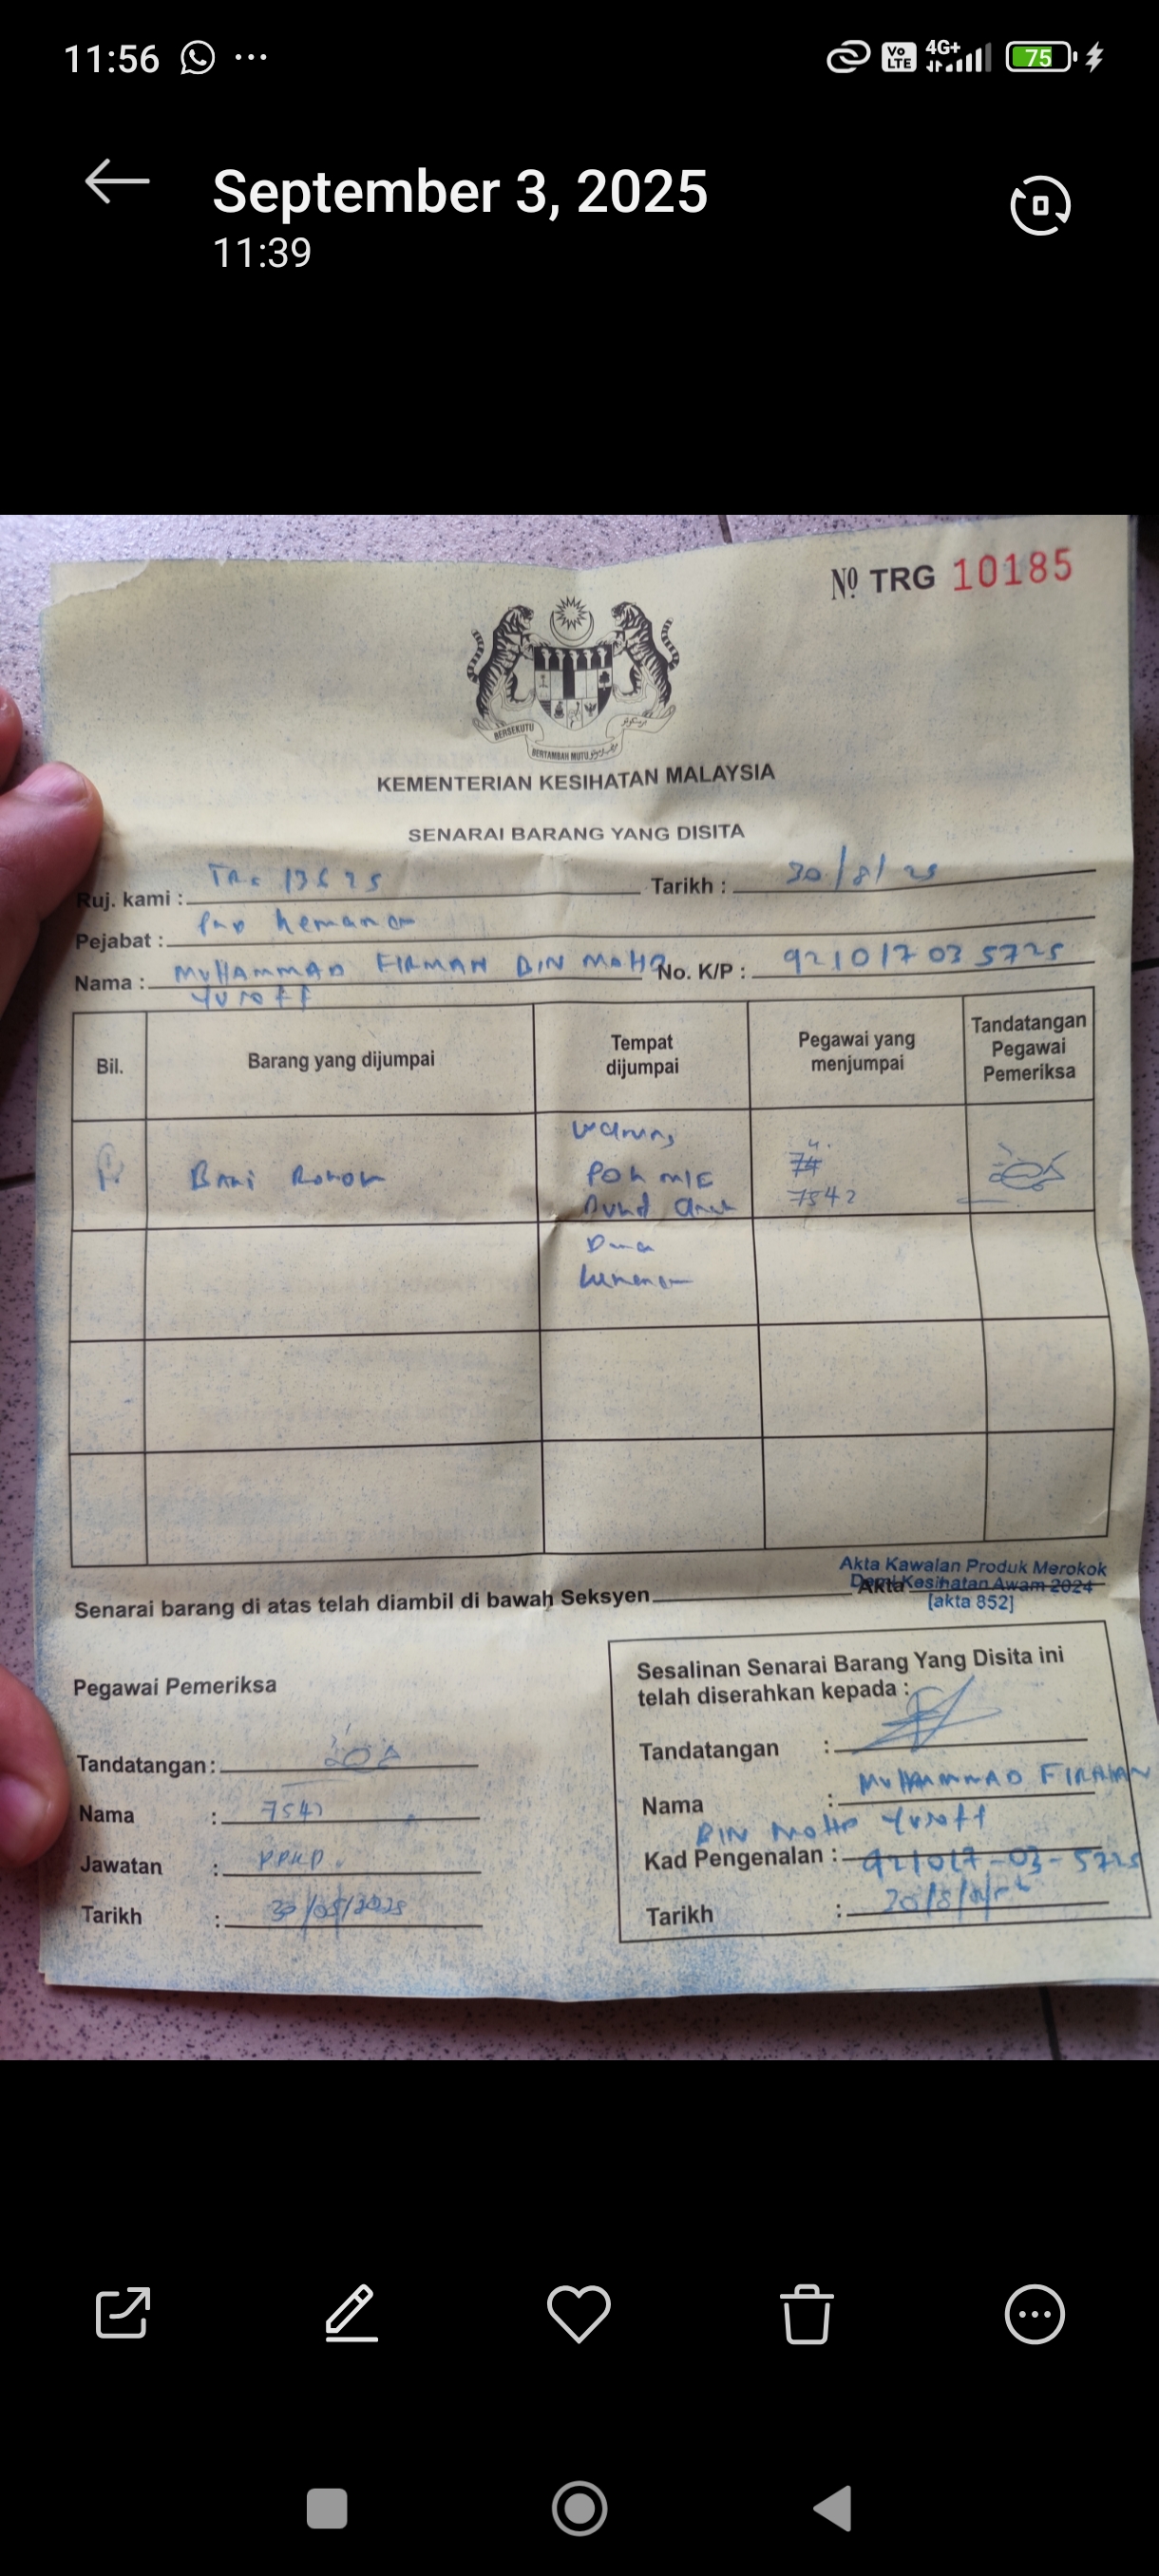 11:56
Vo LTE 4G+ 75
September 3, 2025
11:39
Nº TRG 10185
BERSEKUTU
BERTAMBAH MUTU
KEMENTERIAN KESIHATAN MALAYSIA
SENARAI BARANG YANG DISITA
Ruj. kami : Tarikh : 30/8/25
Pejabat : kemaman
Nama : MUHAMMAD FIRMAN BIN MOHD No. K/P : 921017 03 5725
Yusoff
Bil. Barang yang dijumpai Tempat dijumpai Pegawai yang menjumpai Tandatangan Pegawai Pemeriksa
Rokok Warung
POK MIE 7542
Senarai barang di atas telah diambil di bawah Seksyen Akta
Akta Kawalan Produk Merokok
Demi Kesihatan Awam 2024
[akta 852]
Pegawai Pemeriksa
Tandatangan :
Nama : 7542
Jawatan : PPKP
Tarikh : 30/08/2025
Sesalinan Senarai Barang Yang Disita ini
telah diserahkan kepada :
Tandatangan :
Nama : MUHAMMAD FIRMAN
BIN MOHD Yusoff
Kad Pengenalan : 921017-03-5725
Tarikh :